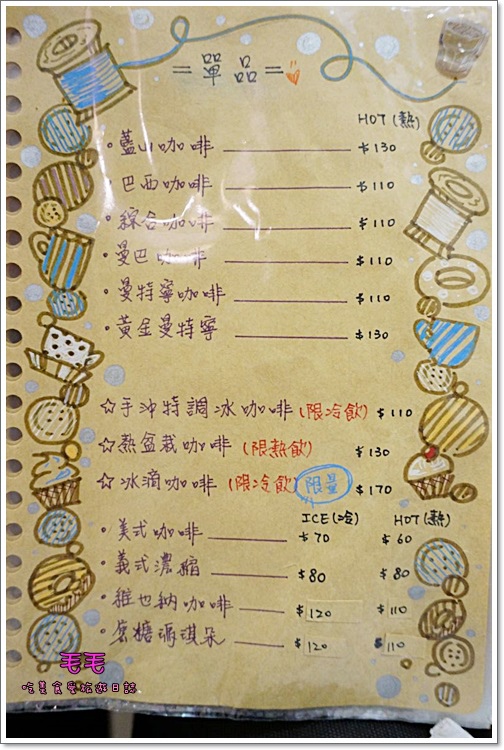 =單品=
HOT(熱)
·藍山咖啡 $130
巴西咖啡 $110
·綜合咖啡 $110
·曼巴咖啡 $110
·曼特寧咖啡 $110
·黃金曼特寧 $130
☆手沖特調冰咖啡(限冷飲) $110
☆熱盆栽咖啡(限熱飲) $130
☆冰滴咖啡(限冷飲) 限量 $170
ICE(冷) HOT(熱)
·美式咖啡 $70 $60
·義式濃縮 $80 $80
·維也納咖啡 $120 $110
·焦糖瑪琪朵 $120 $110
毛毛
吃美食愛旅遊日誌